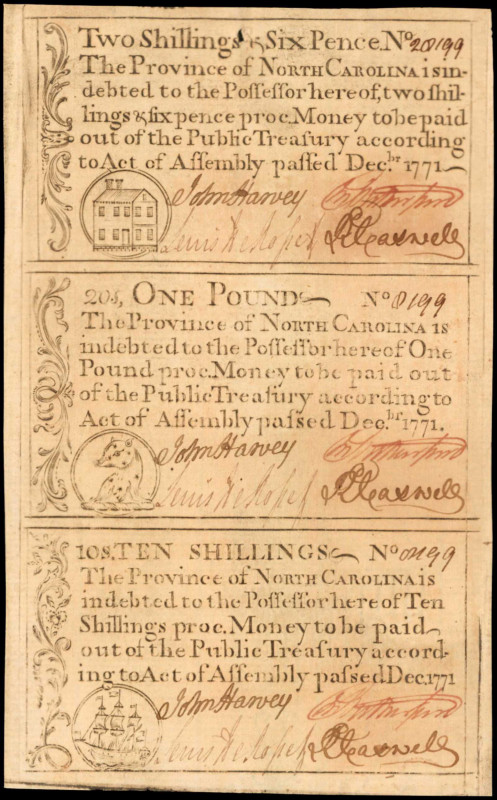 Two Shillings & Six Pence. No 20199
The Province of NORTH CAROLINA is in-
debted to the Poſſeſſor hereof, two shil-
lings & ſix pence proc. Money to be paid
out of the Public Treaſury according
to Act of Aſſembly paſſed Dec.br 1771
John Harvey
Lewis De Roſſet RCaswell
20s, ONE POUND No 8199
The Province of NORTH CAROLINA is
indebted to the Poſſeſſor hereof One
Pound proc. Money to be paid out
of the Public Treaſury according to
Act of Aſſembly paſsed Dec.br 1771.
John Harvey
Lewis De Roſſet RCaswell
10s, TEN SHILLINGS No 199
The Province of NORTH CAROLINA is
indebted to the Poſſeſſor here of Ten
Shillings proc. Money to be paid
out of the Public Treaſury accord-
ing to Act of Aſſembly paſsed Dec. 1771
John Harvey
Lewis De Roſſet RCaswell